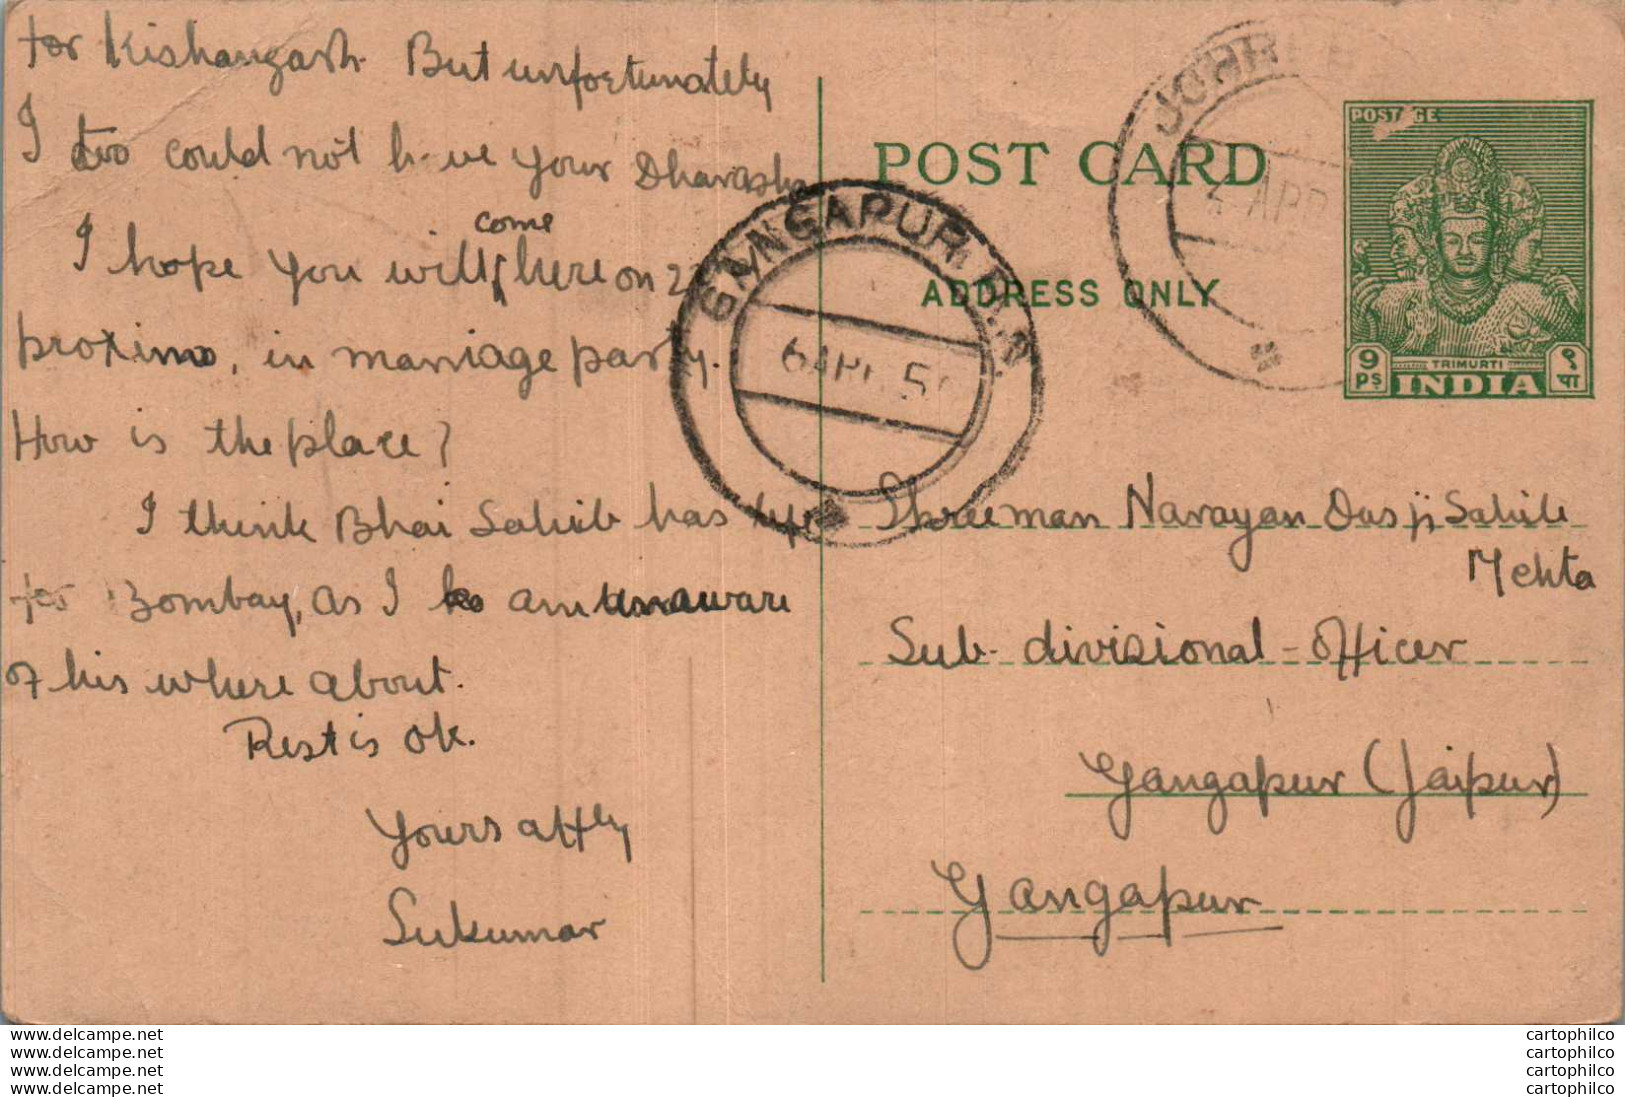 for Kishangarh. But unfortunately
I too could not have your Dharasha
come
I hope you will here on 2
proximo, in marriage party.
How is the place?
I think Bhai Sahib has
for Bombay, as I am unaware
of his where about.
Rest is ok.
Yours affly
Sukumar
POST CARD
ADDRESS ONLY
GANGAPUR R.S.
6 APR 5
APR
POSTAGE
9 PS
TRIMURTI
INDIA
९ पा
Shreeman Narayan Dasji Sahib
Mehta
Sub-divisional-officer
Gangapur (Jaipur)
Gangapur
www.delcampe.net
www.delcampe.net
www.delcampe.net
www.delcampe.net
cartophilco
cartophilco
cartophilco
cartophilco